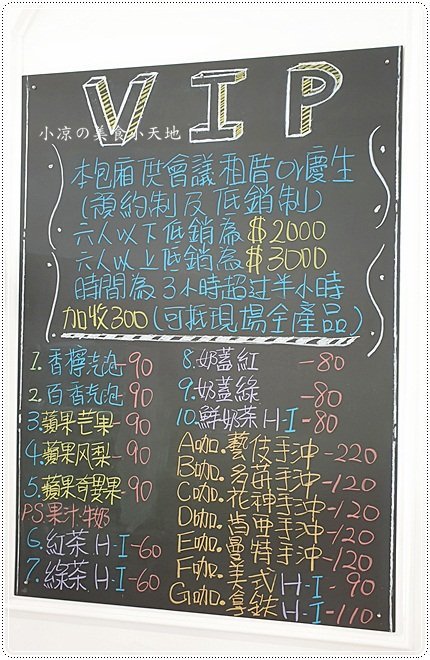 VIP
小凉の美食小天地
本包廂供會議租借or慶生
(預約制及低銷制)
六人以下低銷為$2000
六人以上低銷為$3000
時間為3小時超过半小時
加收300(可抵現場全產品)
1.香檸气泡-90
2.百香气泡-90
3.蘋果芒果-90
4.蘋果风梨-90
5.蘋果奇異果-90
PS.果汁.牛奶
6.紅茶H-I-60
7.綠茶H-I-60
8.奶蓋紅-80
9.奶蓋綠-80
10.鮮奶茶H-I-80
A咖.藝伎手沖-220
B咖.多茜手沖-120
C咖.花神手沖-120
D咖.肯亞手沖-120
E咖.曼特手沖-120
F咖.美式H-I-90
G咖.拿鉄H-I-110